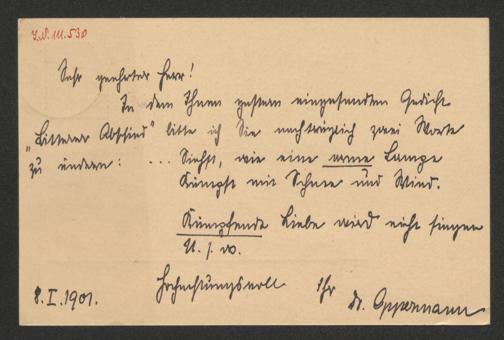 I.N. 111.530
Sehr geehrter Herr!
In dem Ihnen gestern eingesandten Gedicht
„Bitterer Abschied" bitte ich Sie nachträglich zwei Worte
zu ändern: ... Siehst, wie eine arme Lampe
Kämpft mit Schnee und Wind.
Kämpfende Liebe wird nicht singen
U. s. w.
Hochachtungsvoll Ihr
8. I. 1901. Dr. Oppermann